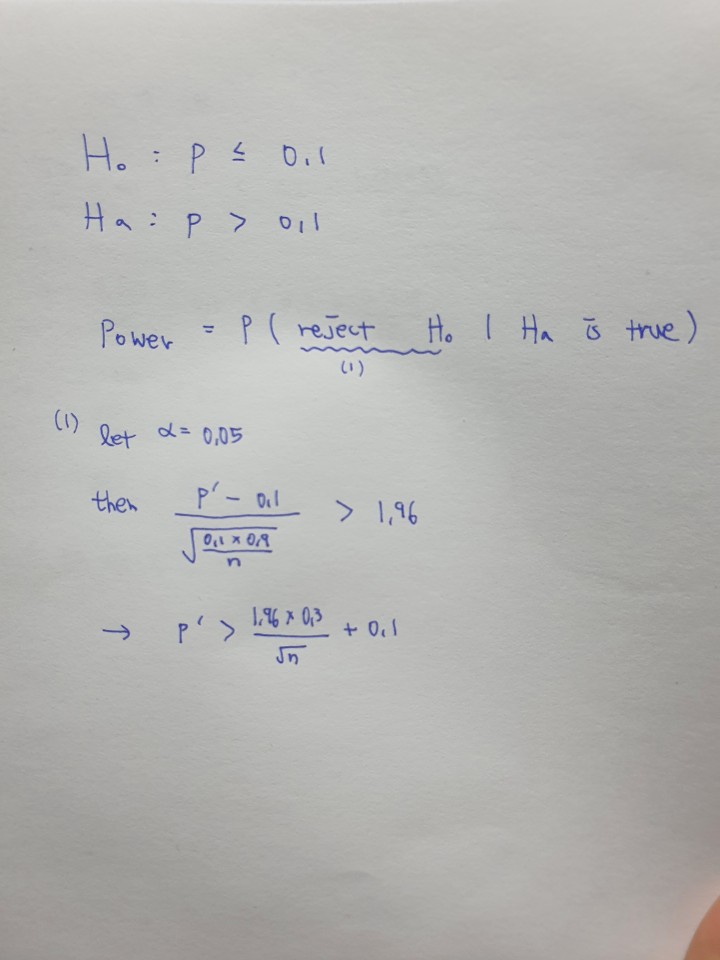 H₀ : P ≤ 0.1
Ha : P > 0.1
Power = P ( reject H₀ | Ha is true )
(1)
(1) let α = 0.05
then (P′ − 0.1) / √((0.1 × 0.9) / n) > 1.96
→ P′ > (1.96 × 0.3) / √n + 0.1